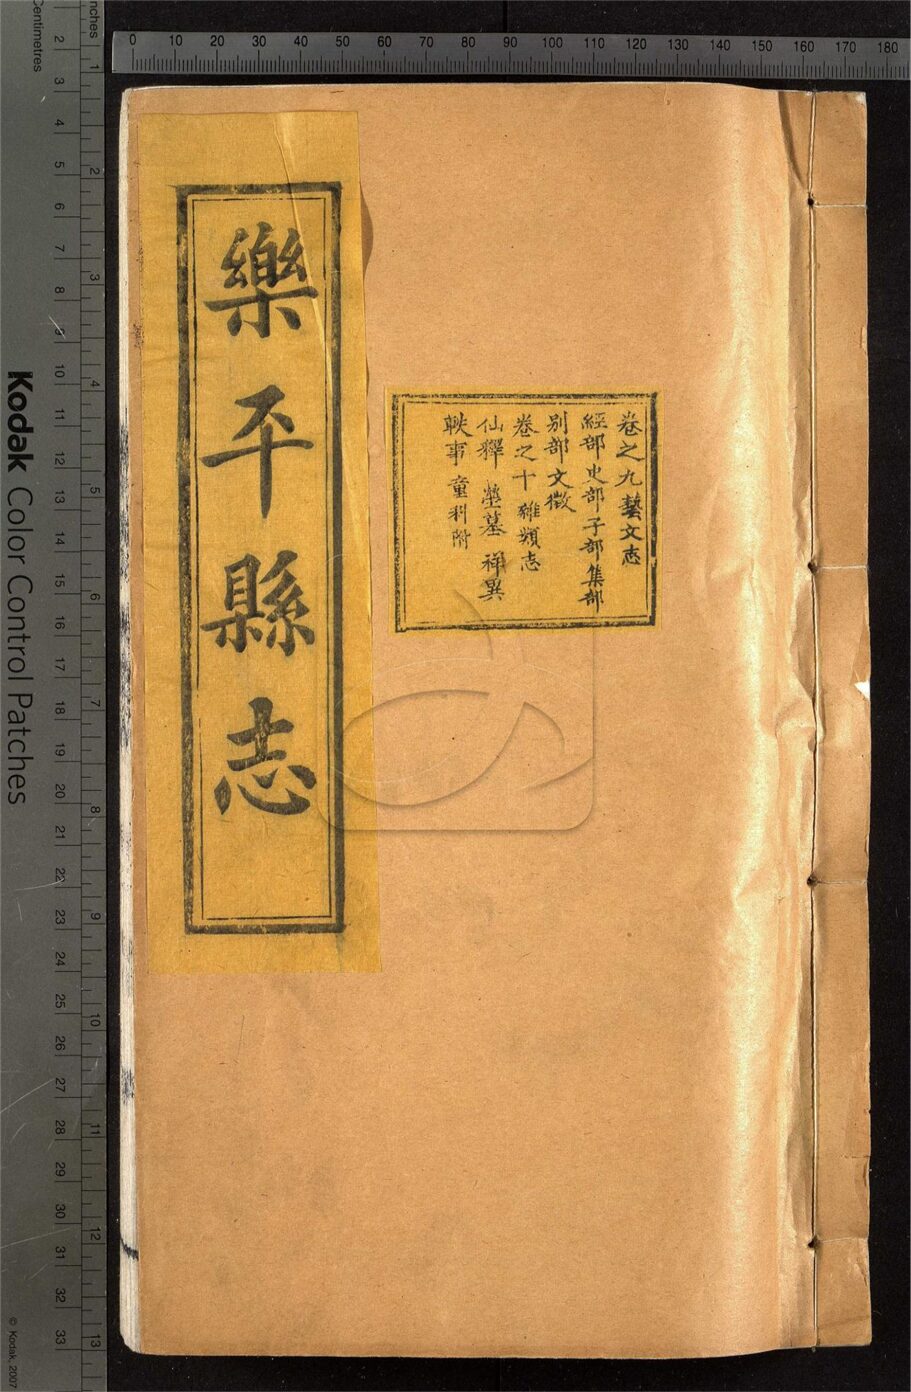 樂平縣志
卷之九藝文志
經部史部子部集部
別部文徵
卷之十雜類志
仙釋 塋墓 祥異
軼事 童科附
0 10 20 30 40 50 60 70 80 90 100 110 120 130 140 150 160 170 180
Inches
1 2 3 4 5 6 7 8 9 10 11 12 13
Centimetres
2 3 4 5 6 7 8 9 10 11 12 13 14 15 16 17 18 19 20 21 22 23 24 25 26 27 28 29 30 31 32 33
Kodak Color Control Patches
© Kodak, 2007